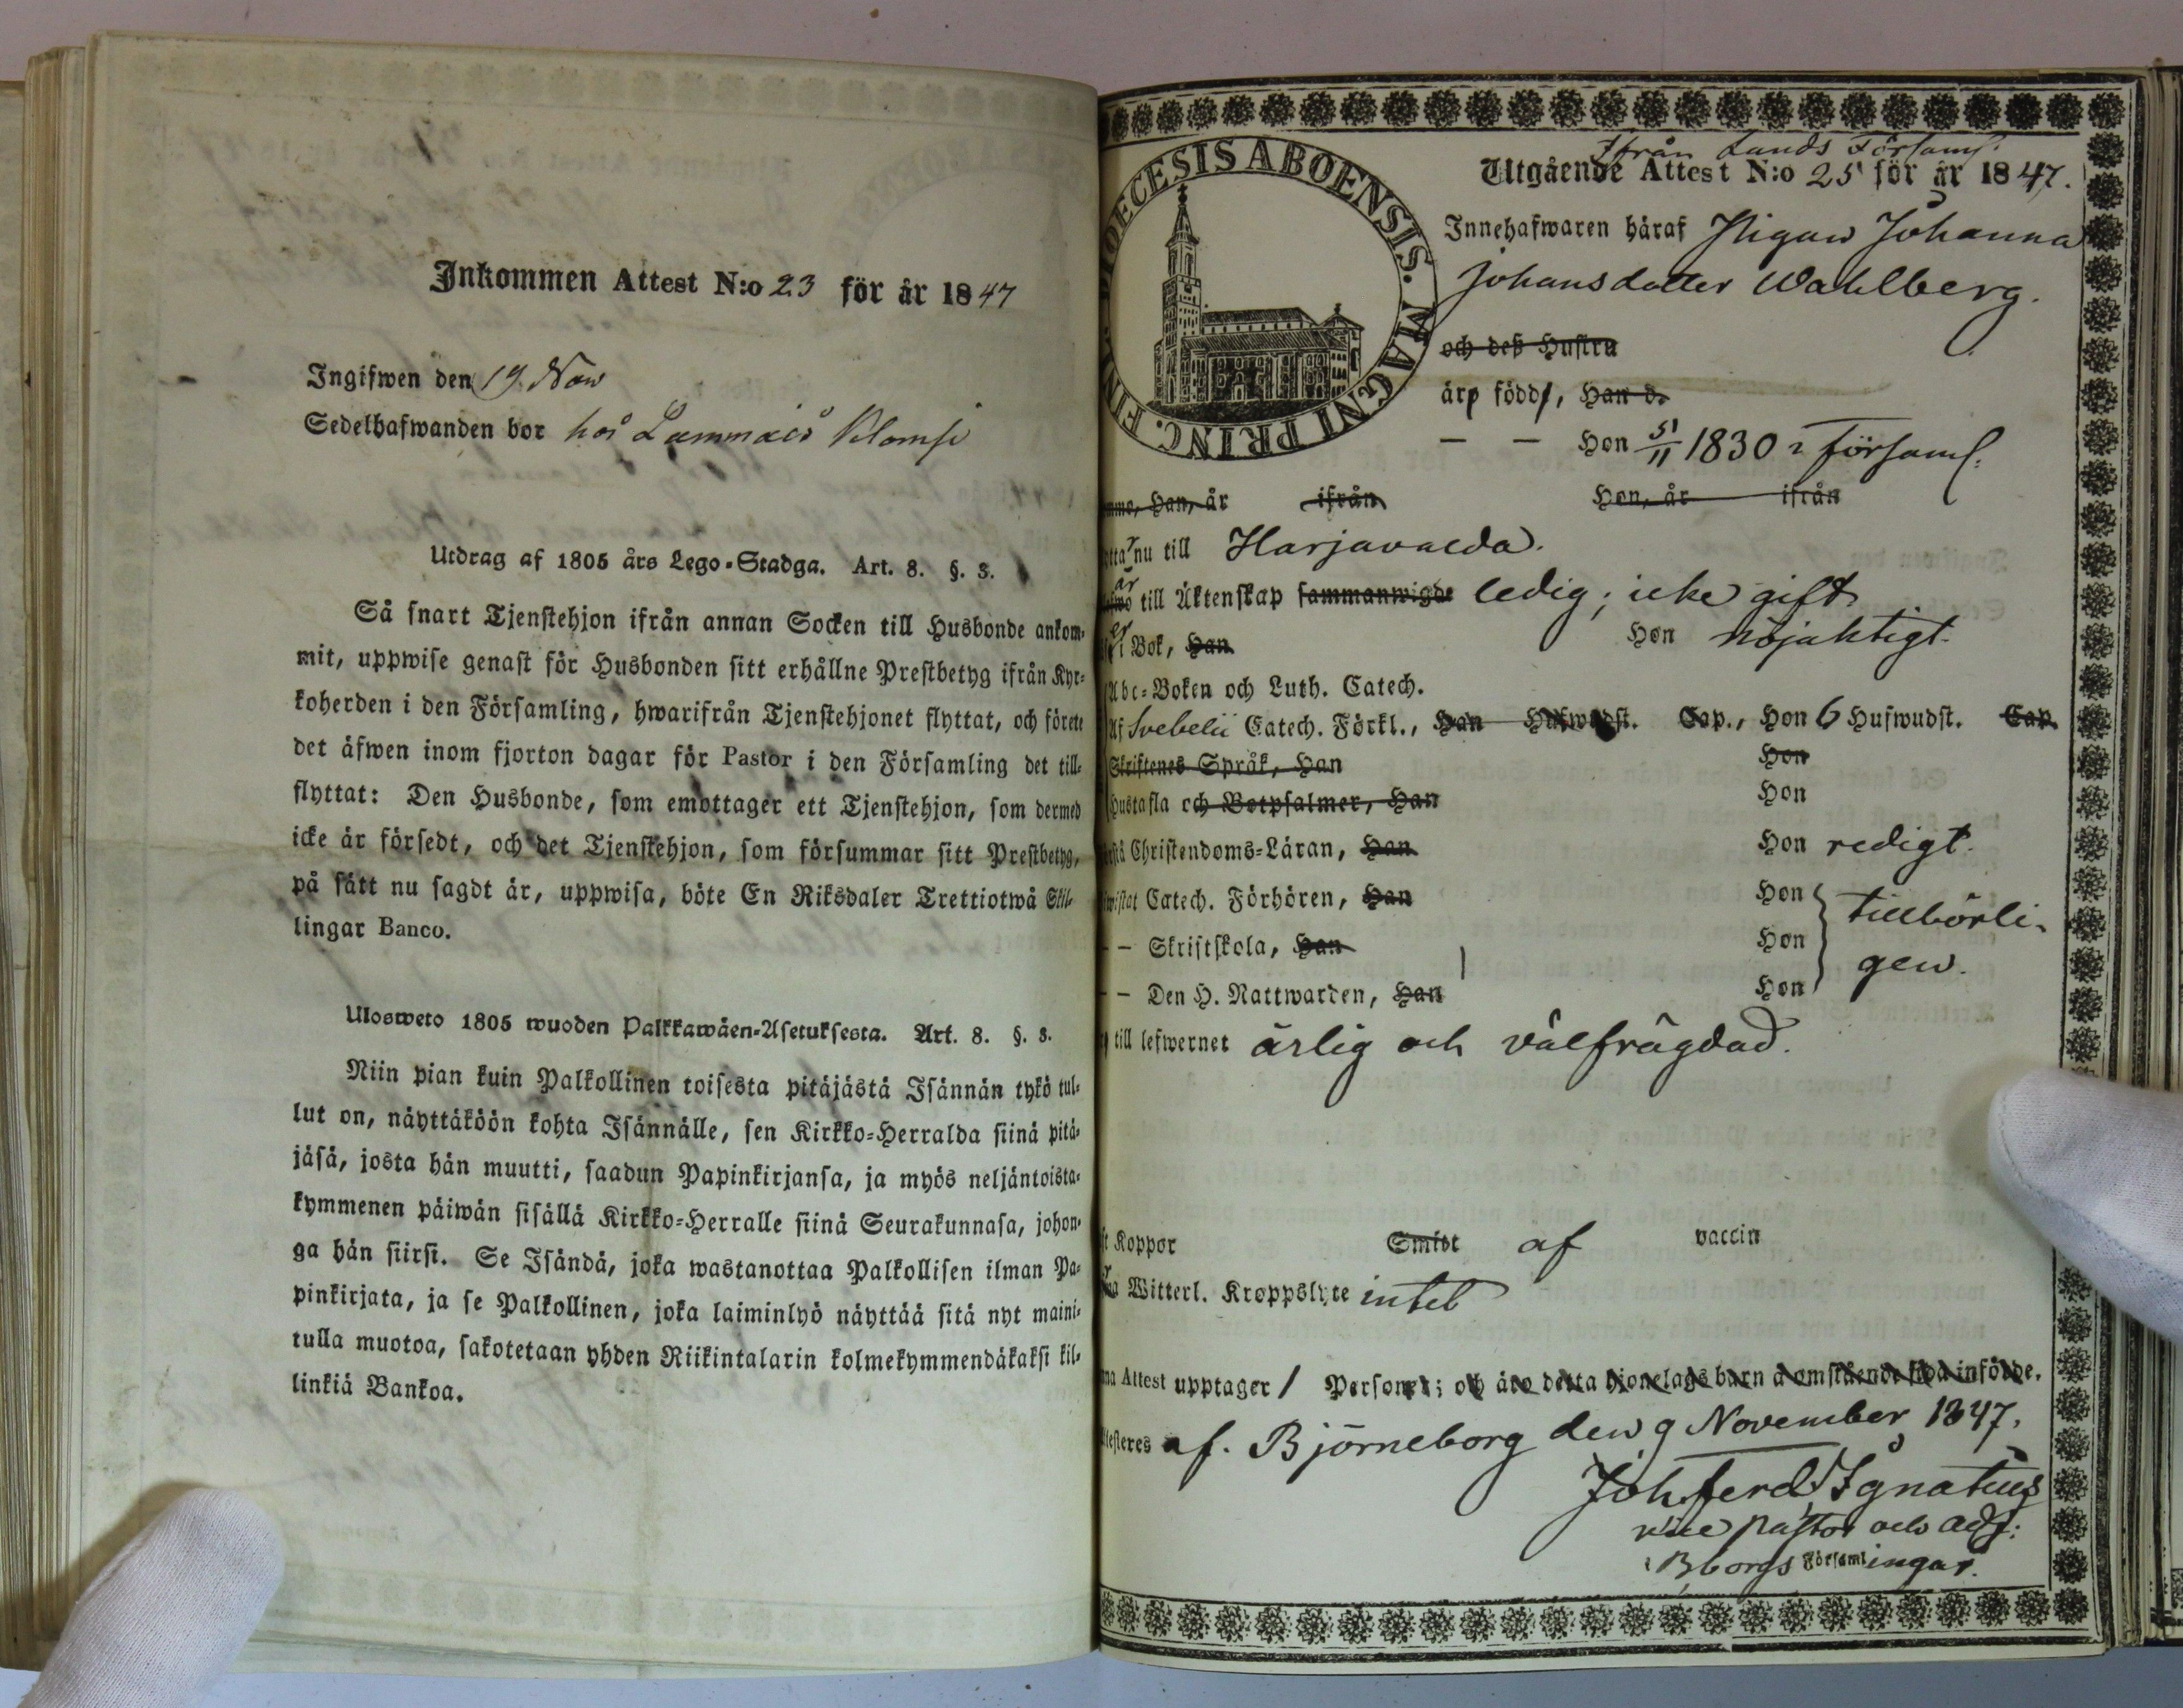 Inkommen Attest N:o 23 för år 1847
Ingifwen den 19 Nov
Sedelhafwanden bor hos Lammais Klomsi
Utdrag af 1805 års Lego-Stadga. Art. 8. §. 3.
Så snart Tjenstehjon ifrån annan Socken till Husbonde ankom-
mit, uppwise genast för Husbonden sitt erhållne Prestbetyg ifrån Kyr-
koherden i den Församling, hwarifrån Tjenstehjonet flyttat, och förete
det äfwen inom fjorton dagar för Pastor i den Församling det till-
flyttat: Den Husbonde, som emottager ett Tjenstehjon, som dermed
icke är försedt, och det Tjenstehjon, som försummar sitt Prestbetyg,
på sätt nu sagdt är, uppwisa, böte En Riksdaler Trettiotwå Skil-
lingar Banco.
Ulosweto 1805 wuoden Palkkawäen-Asetuksesta. Art. 8. §. 3.
Niin pian kuin Palkollinen toisesta pitäjästä Isännän tykö tul-
lut on, näyttäköön kohta Isännälle, sen Kirkko-Herralda siinä pitä-
jäsä, josta hän muutti, saadun Papinkirjansa, ja myös neljäntoista-
kymmenen päiwän sisällä Kirkko-Herralle siinä Seurakunnasa, johon-
ga hän siirsi. Se Isändä, joka wastanottaa Palkollisen ilman Pa-
pinkirjata, ja se Palkollinen, joka laiminlyö näyttää sitä nyt maini-
tulla muotoa, sakotetaan yhden Riikintalarin kolmekymmendäkaksi kil-
linkiä Bankoa.
DIOECESIS ABOENSIS. MAGNI PRINC. FIN.
Ifrån Lands Församl.
Utgående Attest N:o 25 för år 1847.
Innehafwaren häraf Pigan Johanna
Johansdotter Wahlberg.
och deß Hustru
äro född, Han d.
— — Hon 5/11 1830 i församl:
Han, år ifrån Hon, år ifrån
nu till Harjavalda.
är till Äktenskap sammanwigde ledig; icke gift
i Bok, Han Hon nöjaktigt.
Abc-Boken och Luth. Catech.
Af Svebelii Catech. Förkl., Han Hufwudst. Cap., Hon 6 Hufwudst. Cap.
Skriftenes Språk, Han Hon
Hustafla och Botpsalmer, Han Hon
Christendoms-Läran, Han Hon redigt.
Catech. Förhören, Han Hon tillbörli-
— Skriftskola, Han Hon gen.
— Den H. Nattwarden, Han Hon
till lefwernet ärlig och välfrägdad.
Koppor Smitt af vaccin
Witterl. Kroppslyte intet
Attest upptager 1 Personer; och äro detta hjonelags barn å omstående sida införde.
af. Björneborg den 9 November 1847.
Joh. Ferd. Ignatius
vice pastor och adj:
i Bborgs Församlingar.